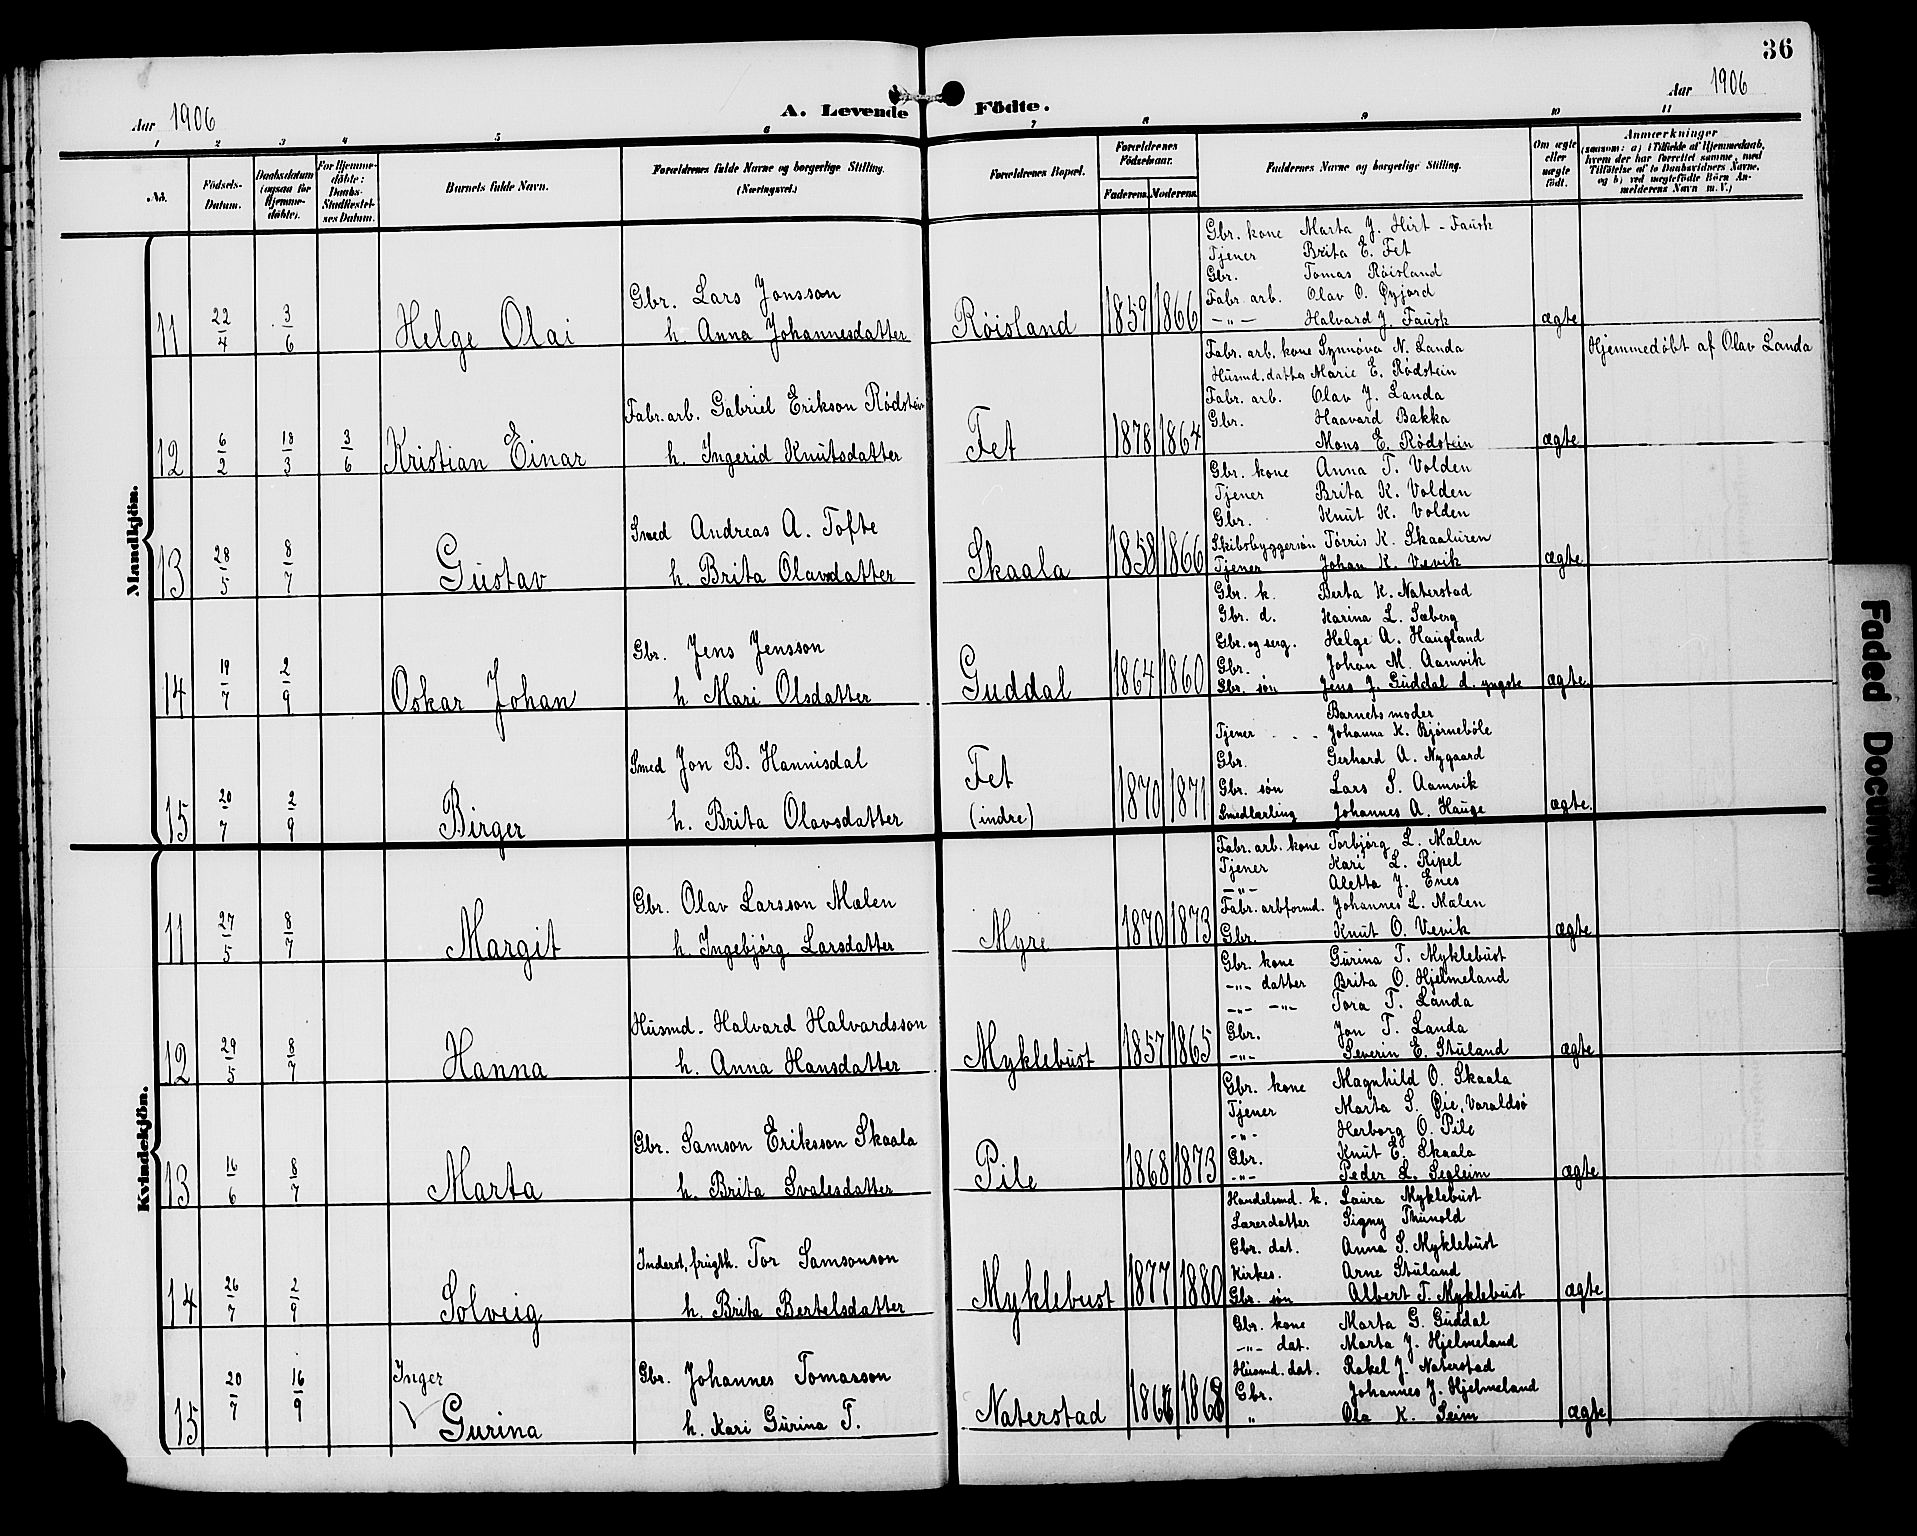 36
Aar 1906
A. Levende Födte.
Aar 1906
1 2 3 4 5 6 7 8 9 10 11
No.
Födsels-Datum.
Daabsdatum (ogsaa for Hjemme-döbte).
For Hjemme-döbte: Daabs-Stadfæstel-ses Datum.
Barnets fulde Navn.
Forældrenes fulde Navne og borgerlige Stilling. (Næringsvei.)
Forældrenes Bopæl.
Forældrenes Födselsaar.
Faderens. Moderens.
Faddernes Navne og borgerlige Stilling.
Om ægte eller uægte født.
Anmærkninger
(saasom: a) i Tilfælde af Hjemmedaab, hvem der har forrettet samme, med Tilføielse af to Daabsvidners Navne, og b) ved uægtefödte Börn Anmelderens Navn m. V.)
Mandkjön.
11 22/4 3/6 Helge Olai
Gbr. Lars Jonsson
h. Anna Johannesdatter
Röisland 1859 1866
Gbr. kone Marta J. Hirt - Fausk
Tjener Brita E. Fet
Gbr. Tomas Röisland
Fabr. arb. Olav O. Øyjord
-"- Halvard J. Fausk
ægte
12 6/2 18/3 3/6 Kristian Einar
Fabr. arb. Gabriel Erikson Rödstein
h. Ingerid Knutsdatter
Fet 1878 1864
Fabr. arb. kone Synnöva N. Landa
Husmd. datter Marie E. Rödstein
Fabr. arb. Olav J. Landa
Gbr. Haavard Bakka
Mons E. Rödstein
ægte
Hjemmedöbt af Olav Landa
13 28/5 8/7 Gustav
Smed Andreas A. Tofte
h. Brita Olavsdatter
Skaala 1858 1866
Gbr. kone Anna T. Volden
Tjener Brita K. Volden
Gbr. Knut K. Volden
Skibsbyggersön Törris K. Skaaluren
Tjener Johan K. Vævik
ægte
14 19/7 2/9 Oskar Johan
Gbr. Jens Jensson
h Mari Olsdatter
Guddal 1864 1860
Gbr. k. Berta K. Naterstad
Gbr. d. Karina L. Sæberg
Gbr. og serg. Helge A. Haugland
Gbr. Johan M. Aamvik
Gbr. sön Jens J. Guddal d. yngste
ægte
15 20/7 2/9 Birger
Smed Jon B. Hannisdal
h. Brita Olavsdatter
Fet
(indre)
1870 1871
Barnets moder
Tjener Johanna K. Björneböle
Gbr. Gerhard A. Nygaard
Gbr. sön Lars S. Aamvik
Smedlærling Johannes A. Hauge
ægte
Kvindekjön.
11 27/5 8/7 Margit
Gbr. Olav Larsson Mælen
h. Ingebjörg Larsdatter
Myre 1870 1873
Fabr. arb. kone Torbjörg L. Mælen
Tjener Kari L. Ripel
-"- Aletta J. Enes
Fabr. arbformd. Johannes L. Mælen
Gbr. Knut O. Vævik
ægte
12 29/5 8/7 Hanna
Husmd. Halvard Halvardsson
h. Anna Hansdatter
Myklebust 1857 1865
Gbr. kone Gurina T. Myklebust
-"- datter Brita O. Hjelmeland
-"- -"- Tora T. Landa
Gbr. Jon T. Landa
-"- Severin E. Stuland
ægte
13 16/6 8/7 Marta
Gbr. Samson Eriksson Skaala
h. Brita Svalesdatter
Pile 1868 1873
Gbr. kone Magnhild O. Skaala
Tjener Marta S. Øie, Varaldsö
-"- Herborg O. Pile
Gbr. Knut E. Skaala
-"- Peder L. Segleim
ægte
14 26/7 2/9 Solveig
Inderst, frugth. Tor Samsonson
h. Brita Bertelsdatter
Myklebust 1877 1880
Handelsmd. k. Laura Myklebust
Lærerdatter Signy Thunold
Gbr. dat. Anna S. Myklebust
Kirkes. Arne Stuland
Gbr. sön Albert T. Myklebust
ægte
15 20/7 16/9 Inger
Gurina
Gbr. Johannes Tomasson
h. Kari Gurina T.
Naterstad 1868
Gbr. kone Marta G. Guddal
-"- dat. Marta J. Hjelmeland
Husmd. dat. Rakel J. Naterstad
Gbr. Johannes J. Hjelmeland
" Ola K. Seim
ægte
Faded Document